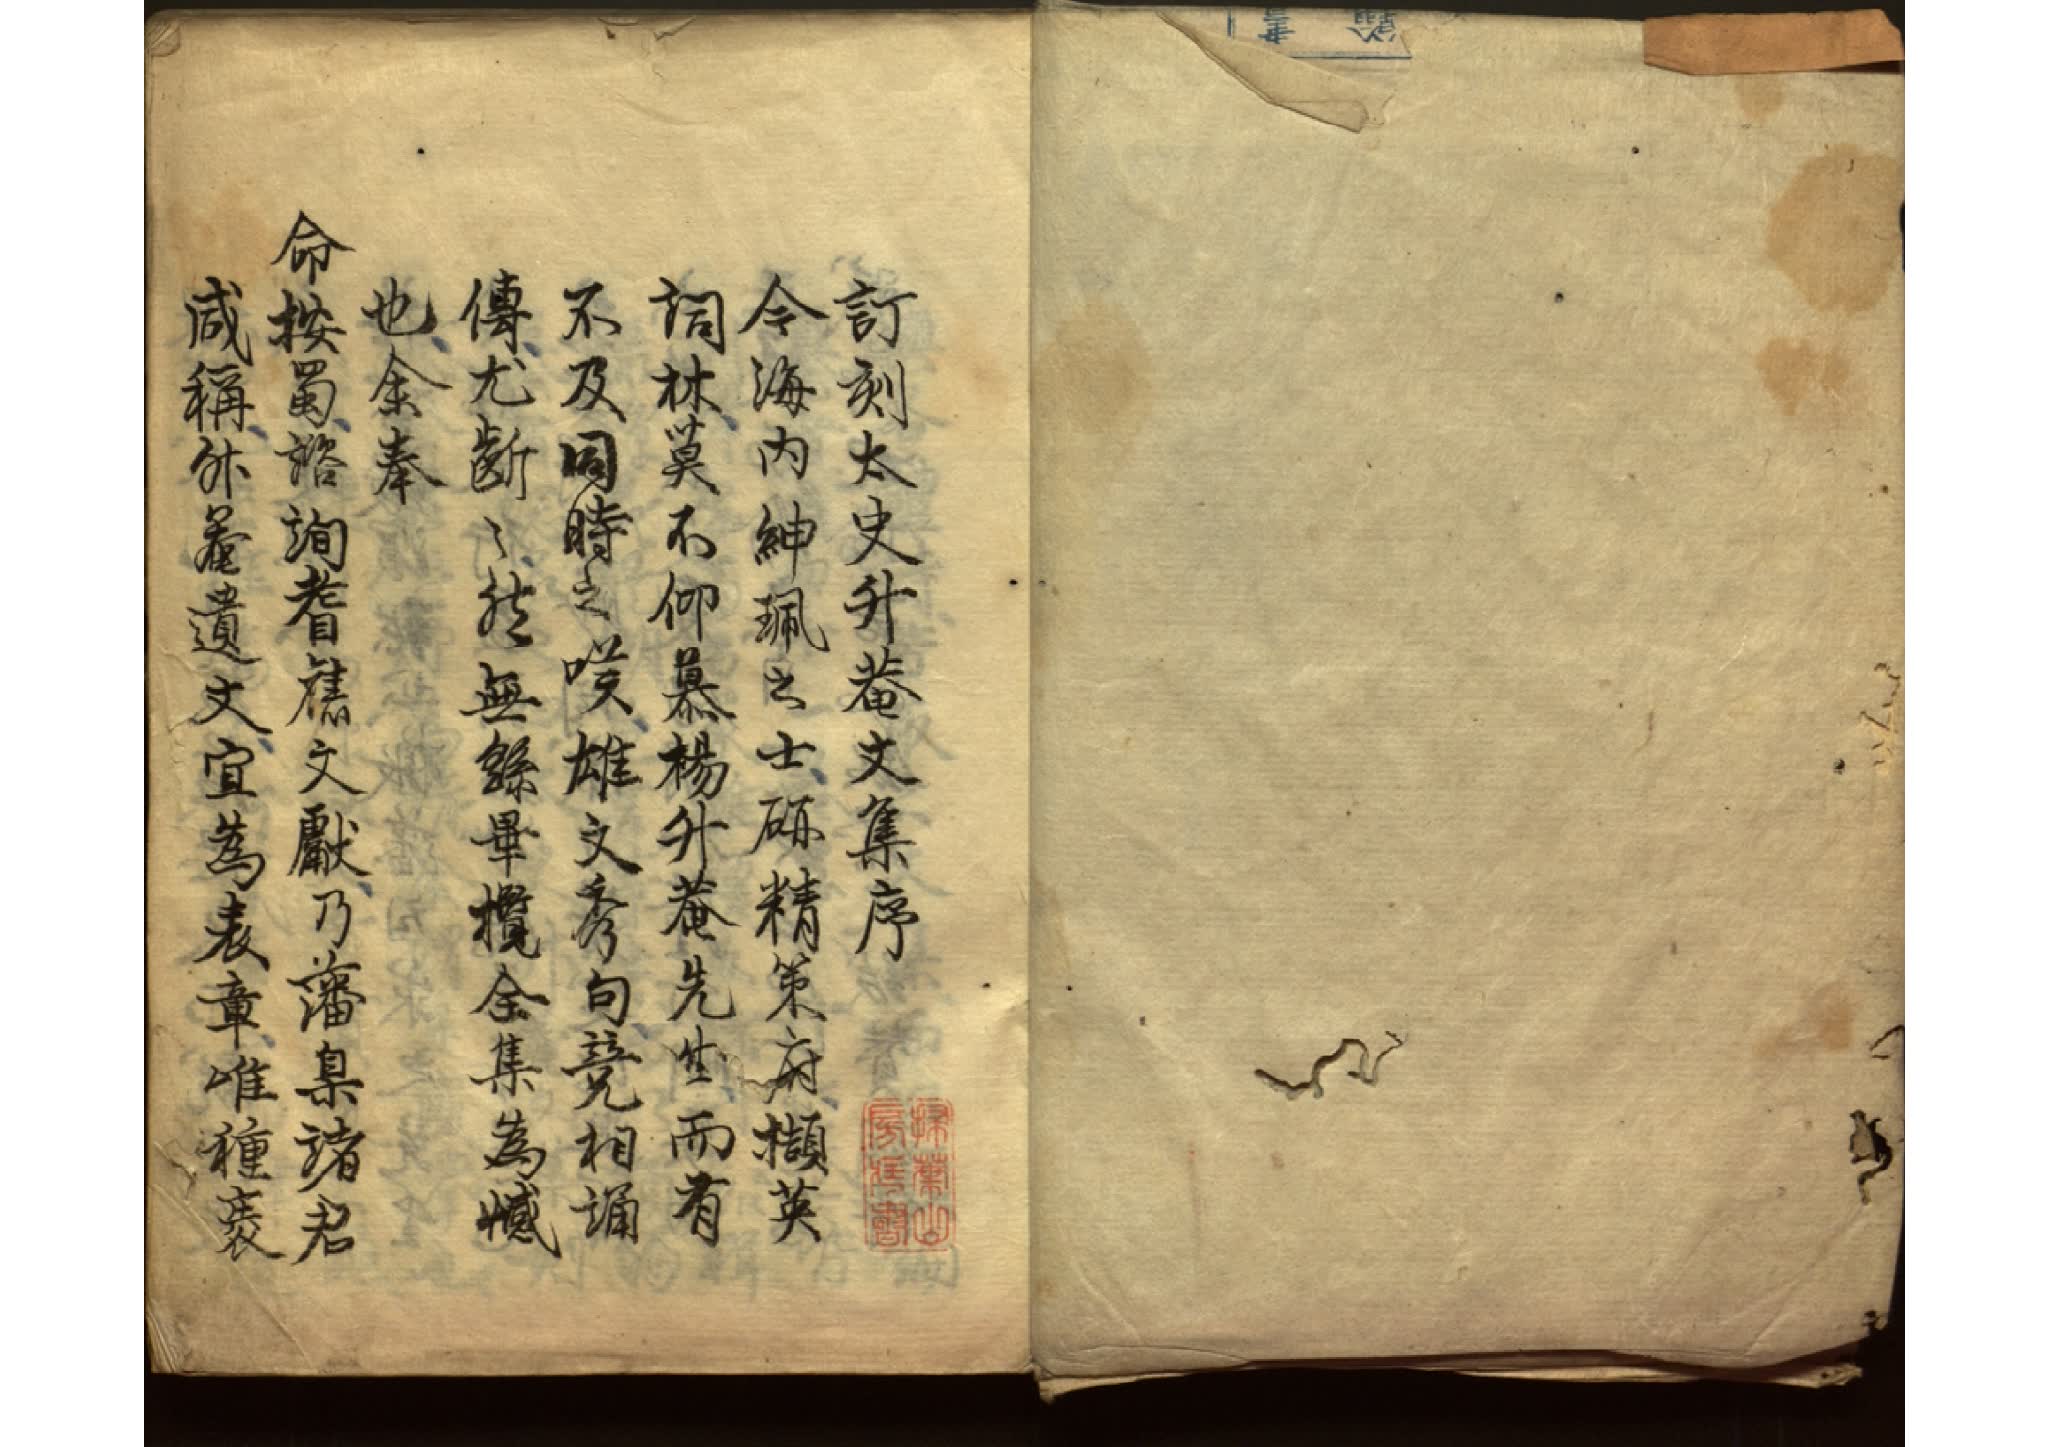 訂刻太史升菴文集序
今海内紳珮之士研精策府擷英
詞林莫不仰慕楊升菴先生而有
不及同時之嘆雄文秀句競相誦
傳尤齗〻然無繇畢欖全集為憾
也余奉
命按蜀諮詢耆舊文獻乃藩臬諸君
咸稱升菴遺文宜為表章唯種褒
掃葉山
房
書